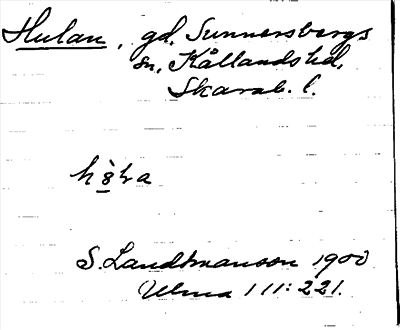 Hulan, gd, Sunnersbergs
sn, Kållands hd,
Skarab. l.
S. Landtmanson 1900
Ulma 111:221.